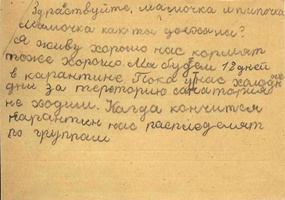 Здраствуйте, мамочка и папочка
Мамочка как ты доехала?
Я живу хорошо нас кормят
тоже хорошо. Мы будем 12 дней
в карантине Пока у нас холодные
дни за територию санатория
не ходим. Кагда кончится
карантин нас распределят
по группам